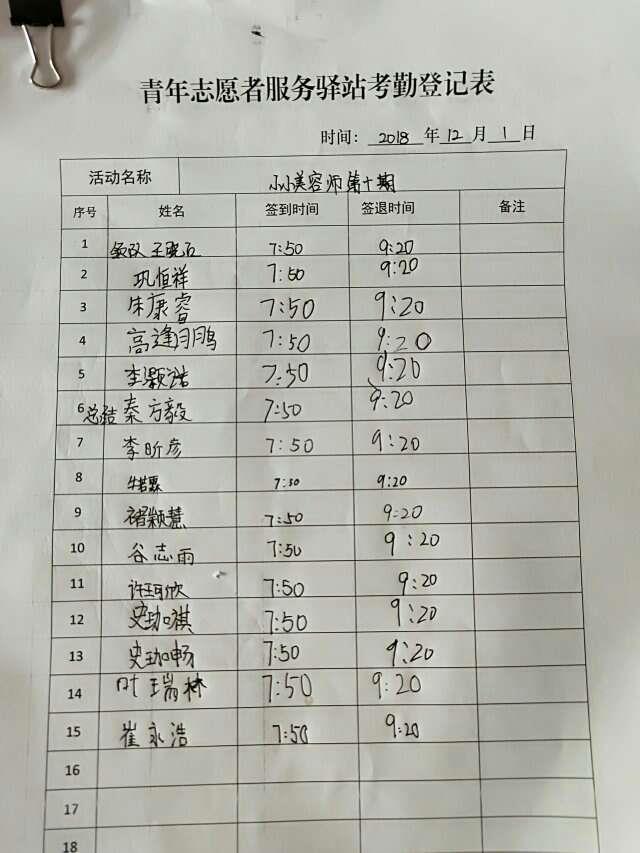 青年志愿者服务驿站考勤登记表
时间: 2018 年 12 月 1 日
活动名称 小小美容师第十期
序号 姓名 签到时间 签退时间 备注
1 领队 王晓石 7:50 9:20
2 巩恒祥 7:50 9:20
3 朱康睿 7:50 9:20
4 高逢月鹏 7:50 9:20
5 李颢浩 7:50 9:20
6 总结 秦方毅 7:50 9:20
7 李昕彦 7:50 9:20
8 7:50 9:20
9 褚颖慧 7:50 9:20
10 谷志雨 7:50 9:20
11 许珂欣 7:50 9:20
12 史珈祺 7:50 9:20
13 史珈畅 7:50 9:20
14 叶瑞林 7:50 9:20
15 崔永浩 7:50 9:20
16
17
18